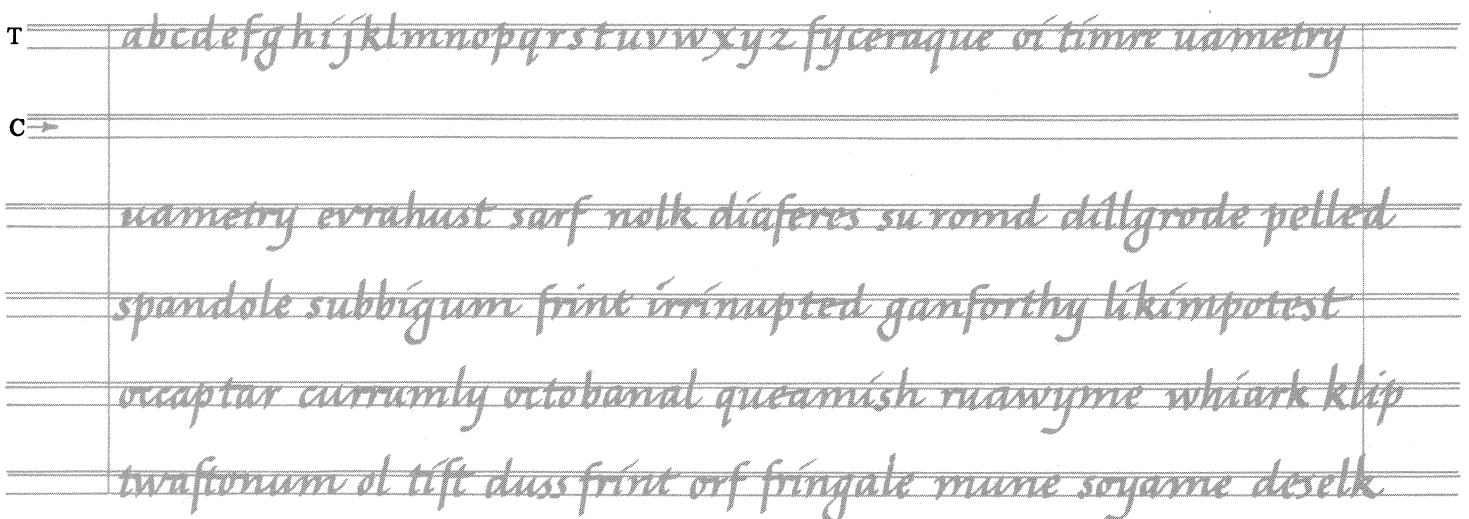 T abcdefghijklmnopqrstuvwxyz fyceraque oi timre uametry
C
uametry evrahust sarf nolk diaferes su romd dillgrode pelled
spandole subbigum frint irrinupted ganforthy likimpotest
occaptar currumly octobanal queamish ruawyme whiark klip
twaftonum ol tift duss frint orf fringale mune soyame deselk